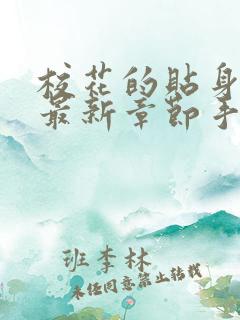 校花的贴身
最新章节手
班李林
未经同意禁止转载